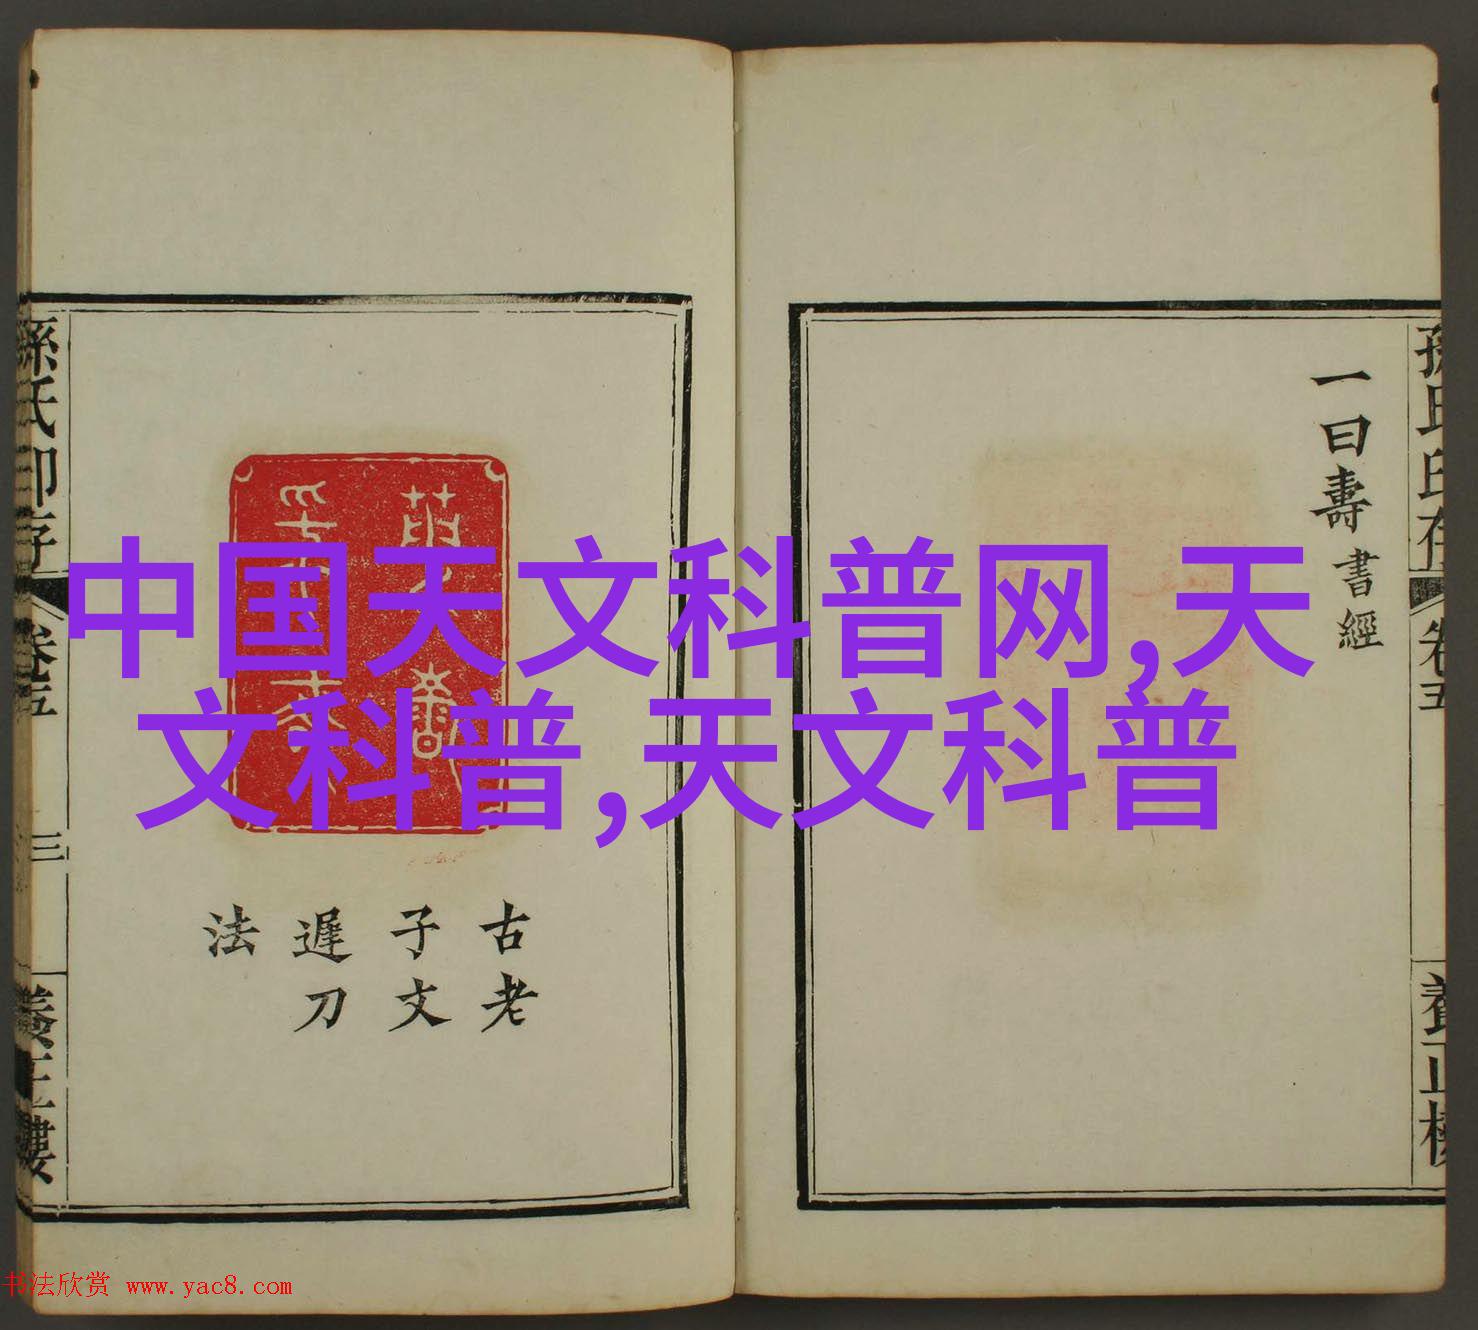 中国天文科普网,天
文科普,天文科普
一曰壽書經
孫氏印存
卷五
養正樓
古老
子文
遲刀
法
孫氏印存
卷五
三
養正樓
书法欣赏 www.yac8.com